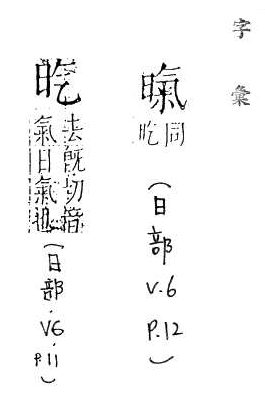 字彙
暣
同
㫓
(日部 V.6 P.12)
㫓
去既切音
氣日氣也
(日部 V6. P.11)